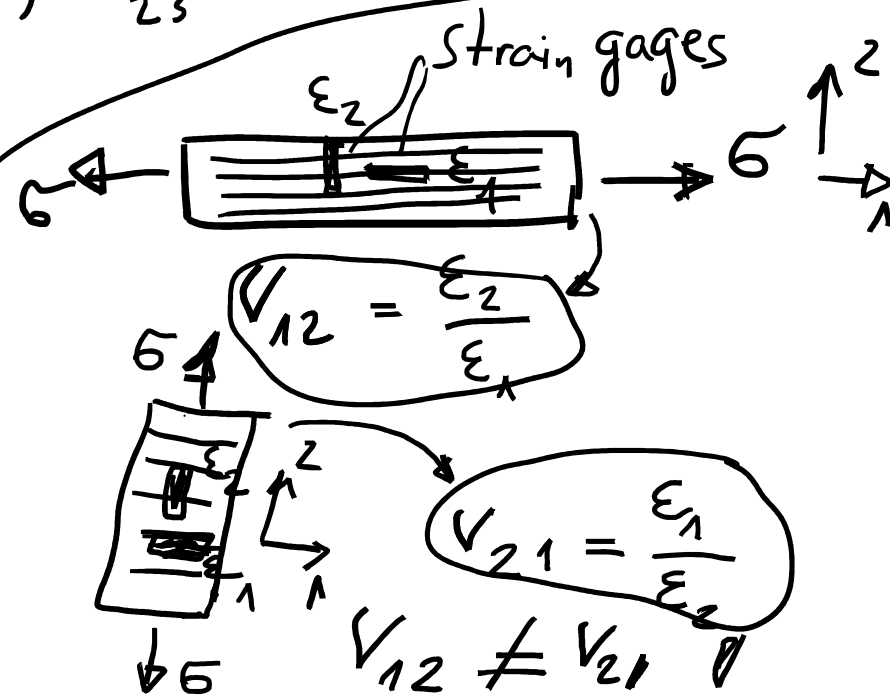 23
Strain gages
ε2
2
σ
ε1
σ
1
ν12 = ε2 / ε1
σ
ε2
2
ε1
1
ν21 = ε1 / ε2
σ
ν12 ≠ ν21 !